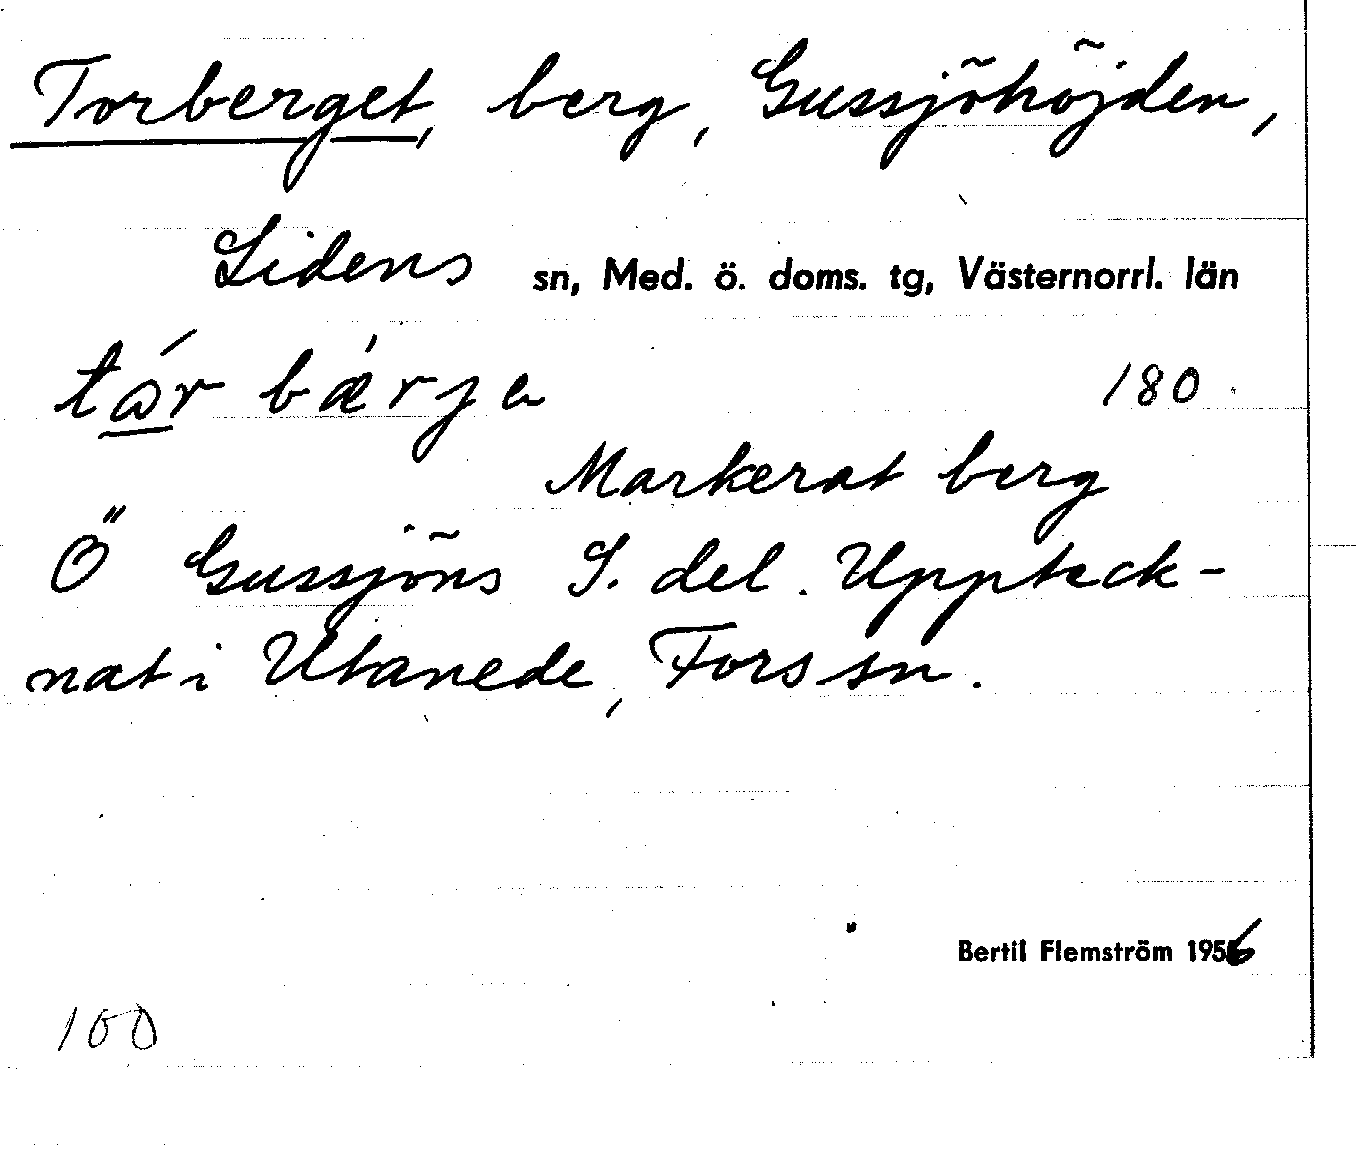 Torberget, berg, Gussjöhöjden,
Lidens sn, Med. ö. doms. tg, Västernorrl. län
180
Markerat berg
Ö Gussjöns S. del. Uppteck-
nat i Utanede, Fors sn.
Bertil Flemström 1956
100